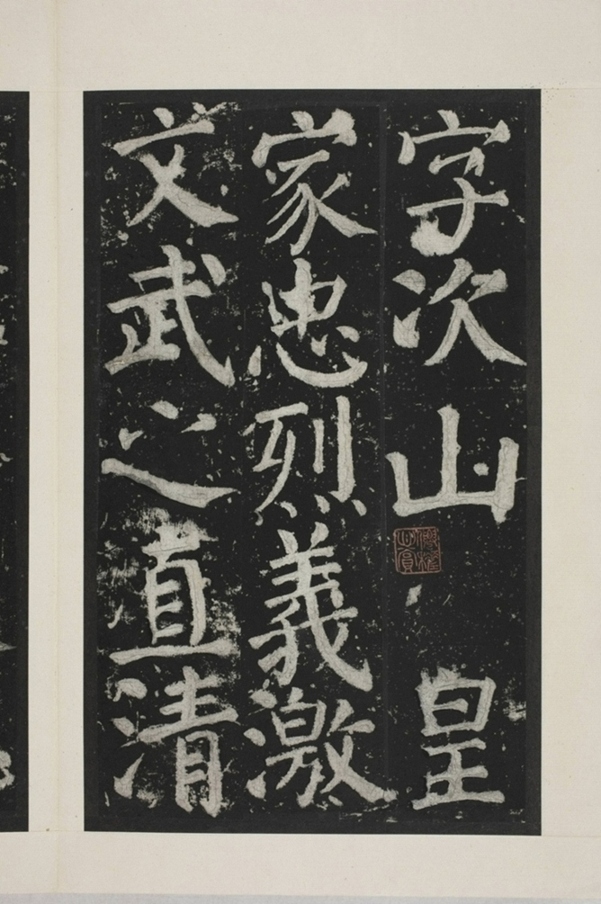 字次山皇
家忠烈義激
文武之直清